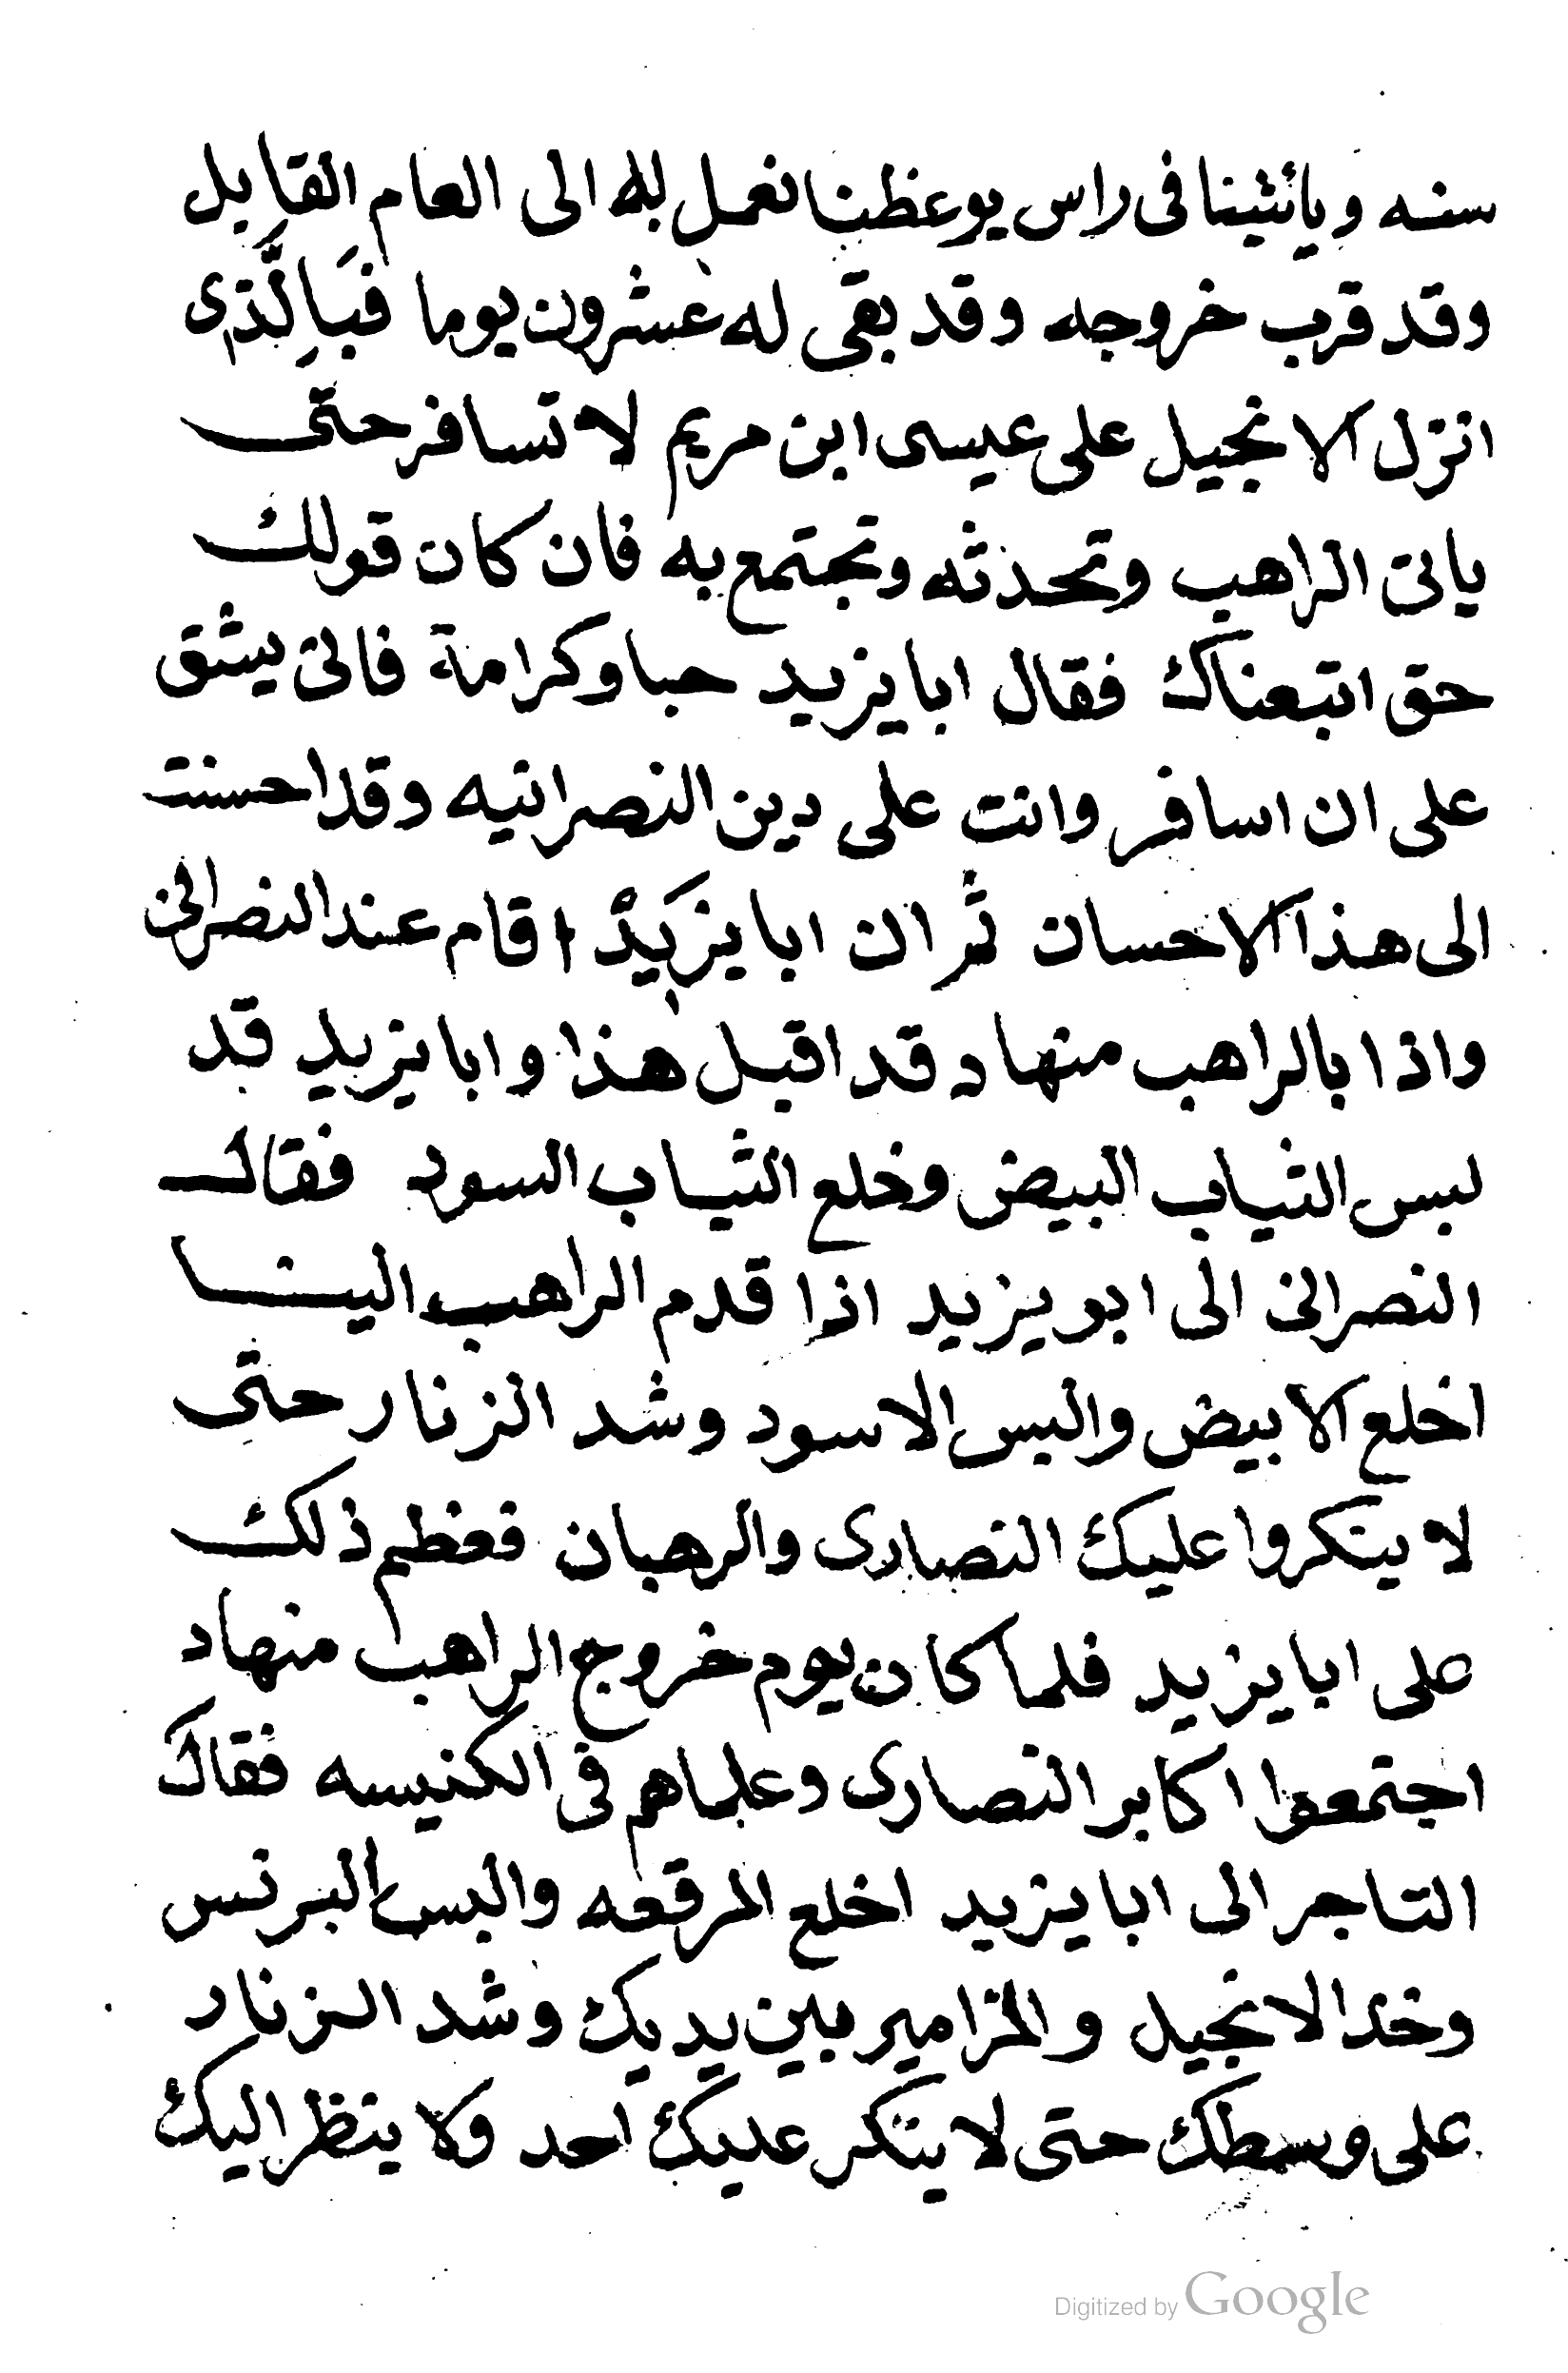 سنه ويأتينا فى راس يوعظنا نعمل لله الى العام القابل
وقد قرب خروجه وقد بقى له عشرون يوما فبالذى
انزل الانجيل على عيسى ابن مريم لا تسافر حتى
ياتى الراهب وتحدثه وتجتمع به فان كان قولك
حق اتبعناك فقال ابا يزيد حبا وكرامة فانى يشق
على ان اسافر وانت على دين النصرانيه وقد احسنت
الى هذا الاحسان ثم ان ابا يَزيدْ اقام عند النصرانى
واذا بالراهب منهاد قد اقبل هذا وابا يزيد قد
لبس الثياب البيض وخلع الثياب السود فقال
النصرانى الى ابو يزيد اذا قدم الراهب الينا
اخلع الابيض والبس الاسود وشد الزنار حتى
لا ينكروا عليك النصارى والرهبان فعظم ذلك
على ابا يزيد فلما كان يوم خروج الراهب منهاد
اجتمعوا اكابر النصارى وعلماهم فى الكنيسه فقال
التاجر الى ابا يزيد اخلع المرقعه والبس البرنس
وخذ الانجيل والمزامير بين يديك وشد الزنار
على وسطك حتى لا ينكر عليك احد ولا ينظر اليك
Digitized by Google